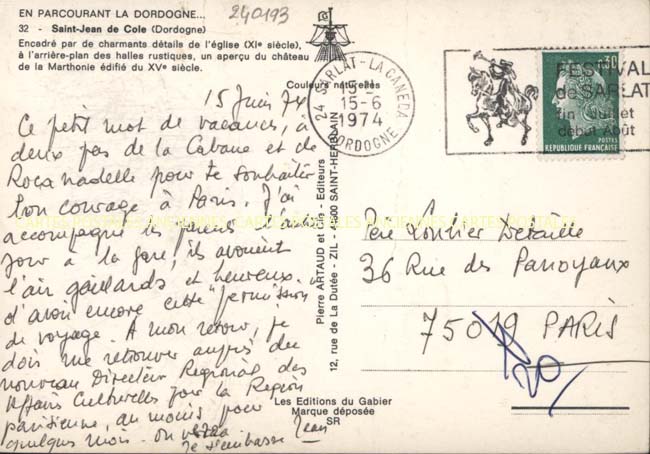 EN PARCOURANT LA DORDOGNE...
240193
32 - Saint-Jean de Cole (Dordogne)
Encadré par de charmants détails de l'église (XIe siècle),
à l'arrière-plan des halles rustiques, un aperçu du château
de la Marthonie édifié du XVe siècle.
Couleurs naturelles
15 Juin 74
Ce petit mot de vacances, à
deux pas de la Cabane et de
Rocanadelle pour te souhaiter
bon courage à Paris. J'ai
accompagné les parents l'autre
jour à la gare, ils avaient
l'air gaillards et heureux
d'avoir encore cette "permission"
de voyage. A mon retour, je
dois me retrouver auprès du
nouveau Directeur Régional des
Affaires Culturelles pour la Région
parisienne, au moins pour
quelques mois. On verra
Je t'embrasse Jean
Pierre ARTAUD et Cie - Editeurs
12, rue de La Dutée - ZIL - 44800 SAINT-HERBLAIN
24 SARLAT-LA CANEDA
15-6
1974
DORDOGNE
FESTIVAL
de SARLAT
fin Juillet
début Août
0,30
POSTES
REPUBLIQUE FRANÇAISE
CARTES POSTALES ANCIENNES CARTES POSTALES ANCIENNES CARTES POSTALES
Père Detaille
36 Rue des Panoyaux
75019 PARIS
20
Les Editions du Gabier
Marque déposée
SR